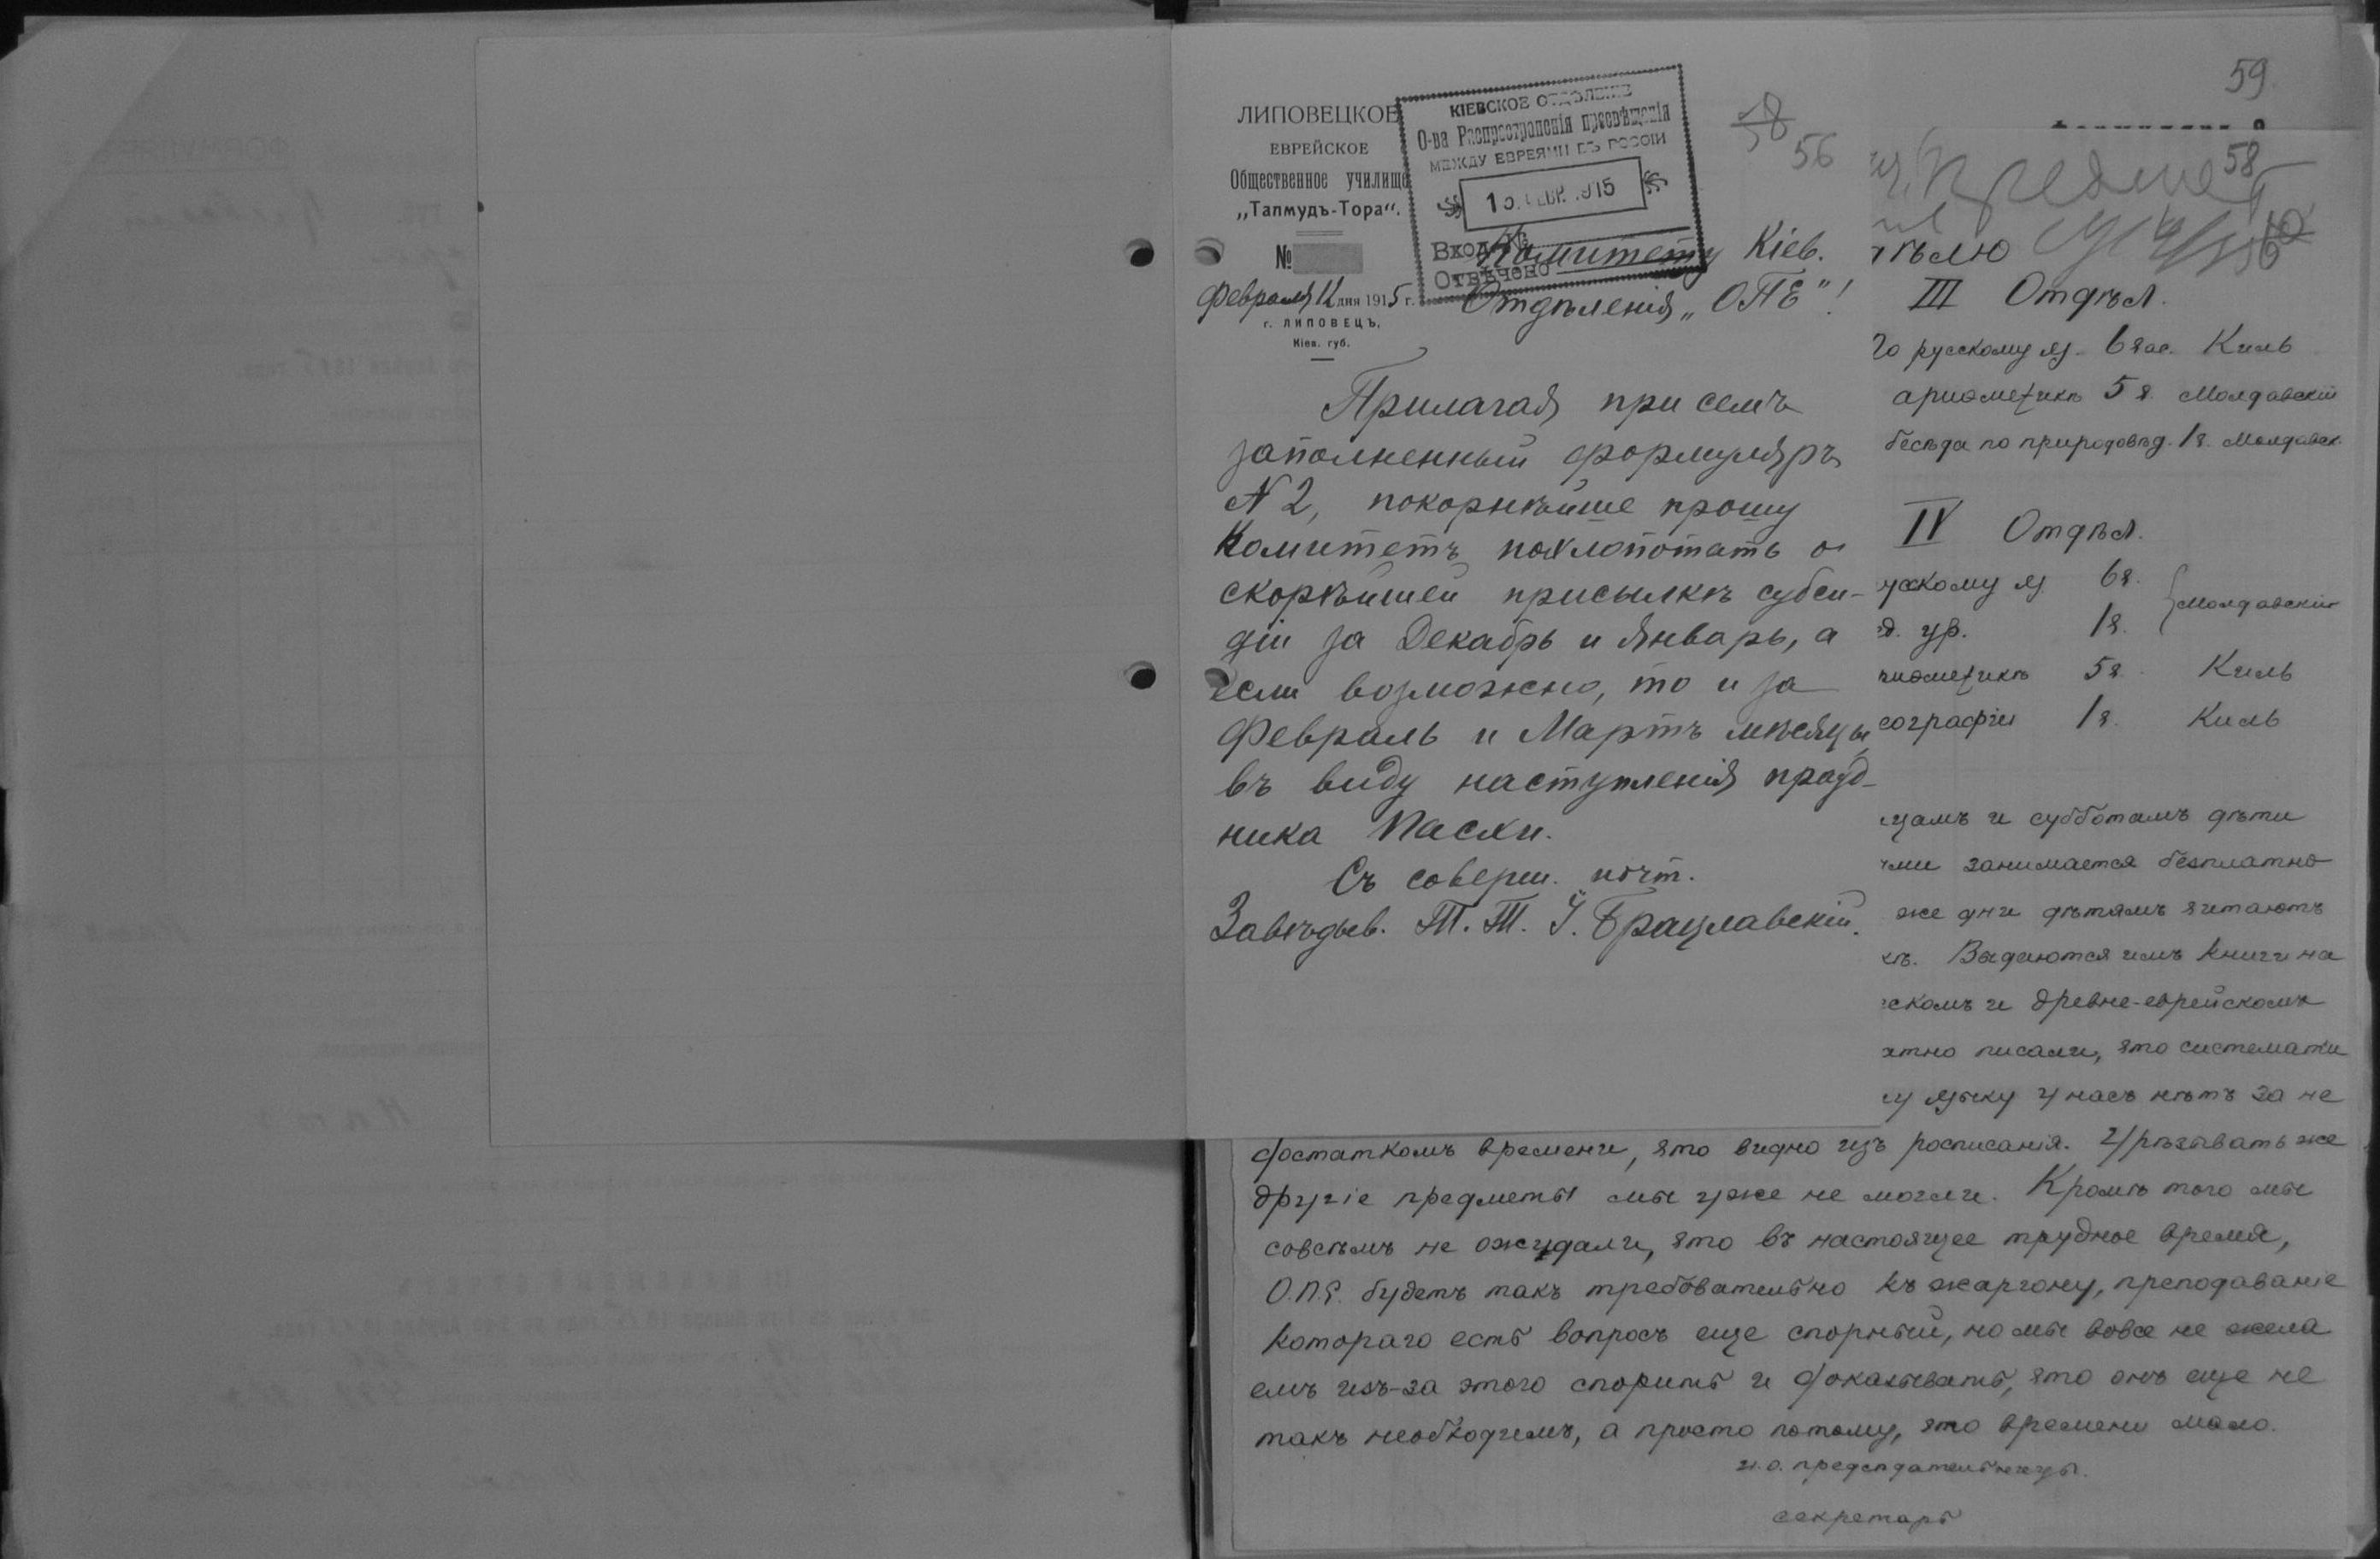 59
ЛИПОВЕЦКОЕ
ЕВРЕЙСКОЕ
Общественное училище
„Талмудъ-Тора“.
№
Февраля 12 дня 1915 г.
г. ЛИПОВЕЦЪ,
Кіев. губ.
КІЕВСКОЕ ОТДѢЛЕНІЕ
О-ва Распространенія просвѣщенія
МЕЖДУ ЕВРЕЯМИ ВЪ РОССІИ
1915
Вход. №
Отвѣчено
58
56
Комитету Кіев.
Отдѣленія „ОПЕ“!
Прилагая при семъ
заполненный формуляръ
N 2, покорнѣйше прошу
Комитетъ похлопотать о
скорѣйшей присылкѣ субси-
діи за Декабрь и Январь, а
если возможно, то и за
Февраль и Мартъ мѣсяцы
въ виду наступленія празд-
ника Пасхи.
Съ соверш. почт.
Завѣдыв. Т. Т. І. Брацлавскій.
58
ѣлю
III Отдѣл.
русскому яз. 6 час. Киль
ариѳметикѣ 5 ч. Молдавскій
бесѣда по природовѣд. 1 ч. Молдавск.
IV Отдѣл.
усскому яз 6 ч.
Молдавскій
ур. 1 ч.
риѳметикѣ 5 ч. Киль
еографіи 1 ч. Киль
цамъ и субботамъ дѣти
ми занимается безплатно
же дни дѣтямъ читаютъ
Выдаются имъ книги на
скомъ и древне-еврейскомъ
атно писали, что системати
у языку у насъ нѣтъ за не
достаткомъ времени, что видно изъ росписанія. Урѣзывать же
другіе предметы мы уже не могли. Кромѣ того мы
совсѣмъ не ожидали, что въ настоящее трудное время,
О.П.Е. будетъ такъ требовательно къ жаргону, преподаваніе
котораго есть вопросъ еще спорный, но мы вовсе не жела
емъ изъ-за этого спорить и доказывать, что онъ еще не
такъ необходимъ, а просто потому, что времени мало.
и.о. предсѣдательницы.
секретарь